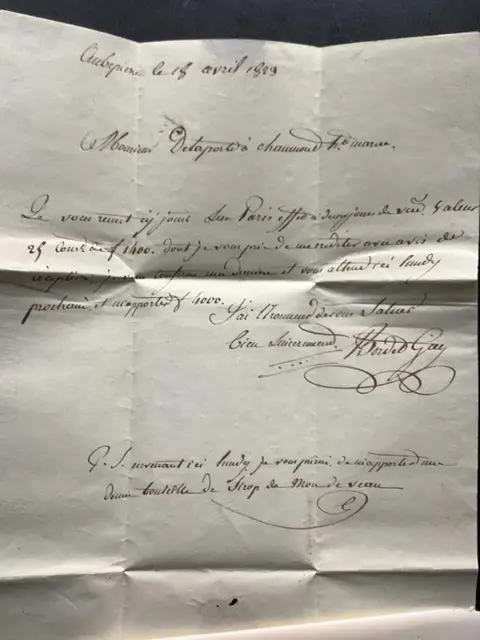 Aubepierre le 18 avril 1823
Monsieur Delaporte à chaumond hte marne.
Je vous remet cy joint Sur Paris effet à deux jours de vue, Valeur
25 Court de f 1400. dont je vous prie de me créditer avec avis de
réception. je vous confirme ma dernière et vous attend ici lundy
prochain, et m'apporter f 4000.
J'ai l'honneur de vous Saluer
bien Sincerement. Gay
P. S. en venant ici lundy je vous prierai de m'apporter une
demie bouteille de Sirop de Mou de veau